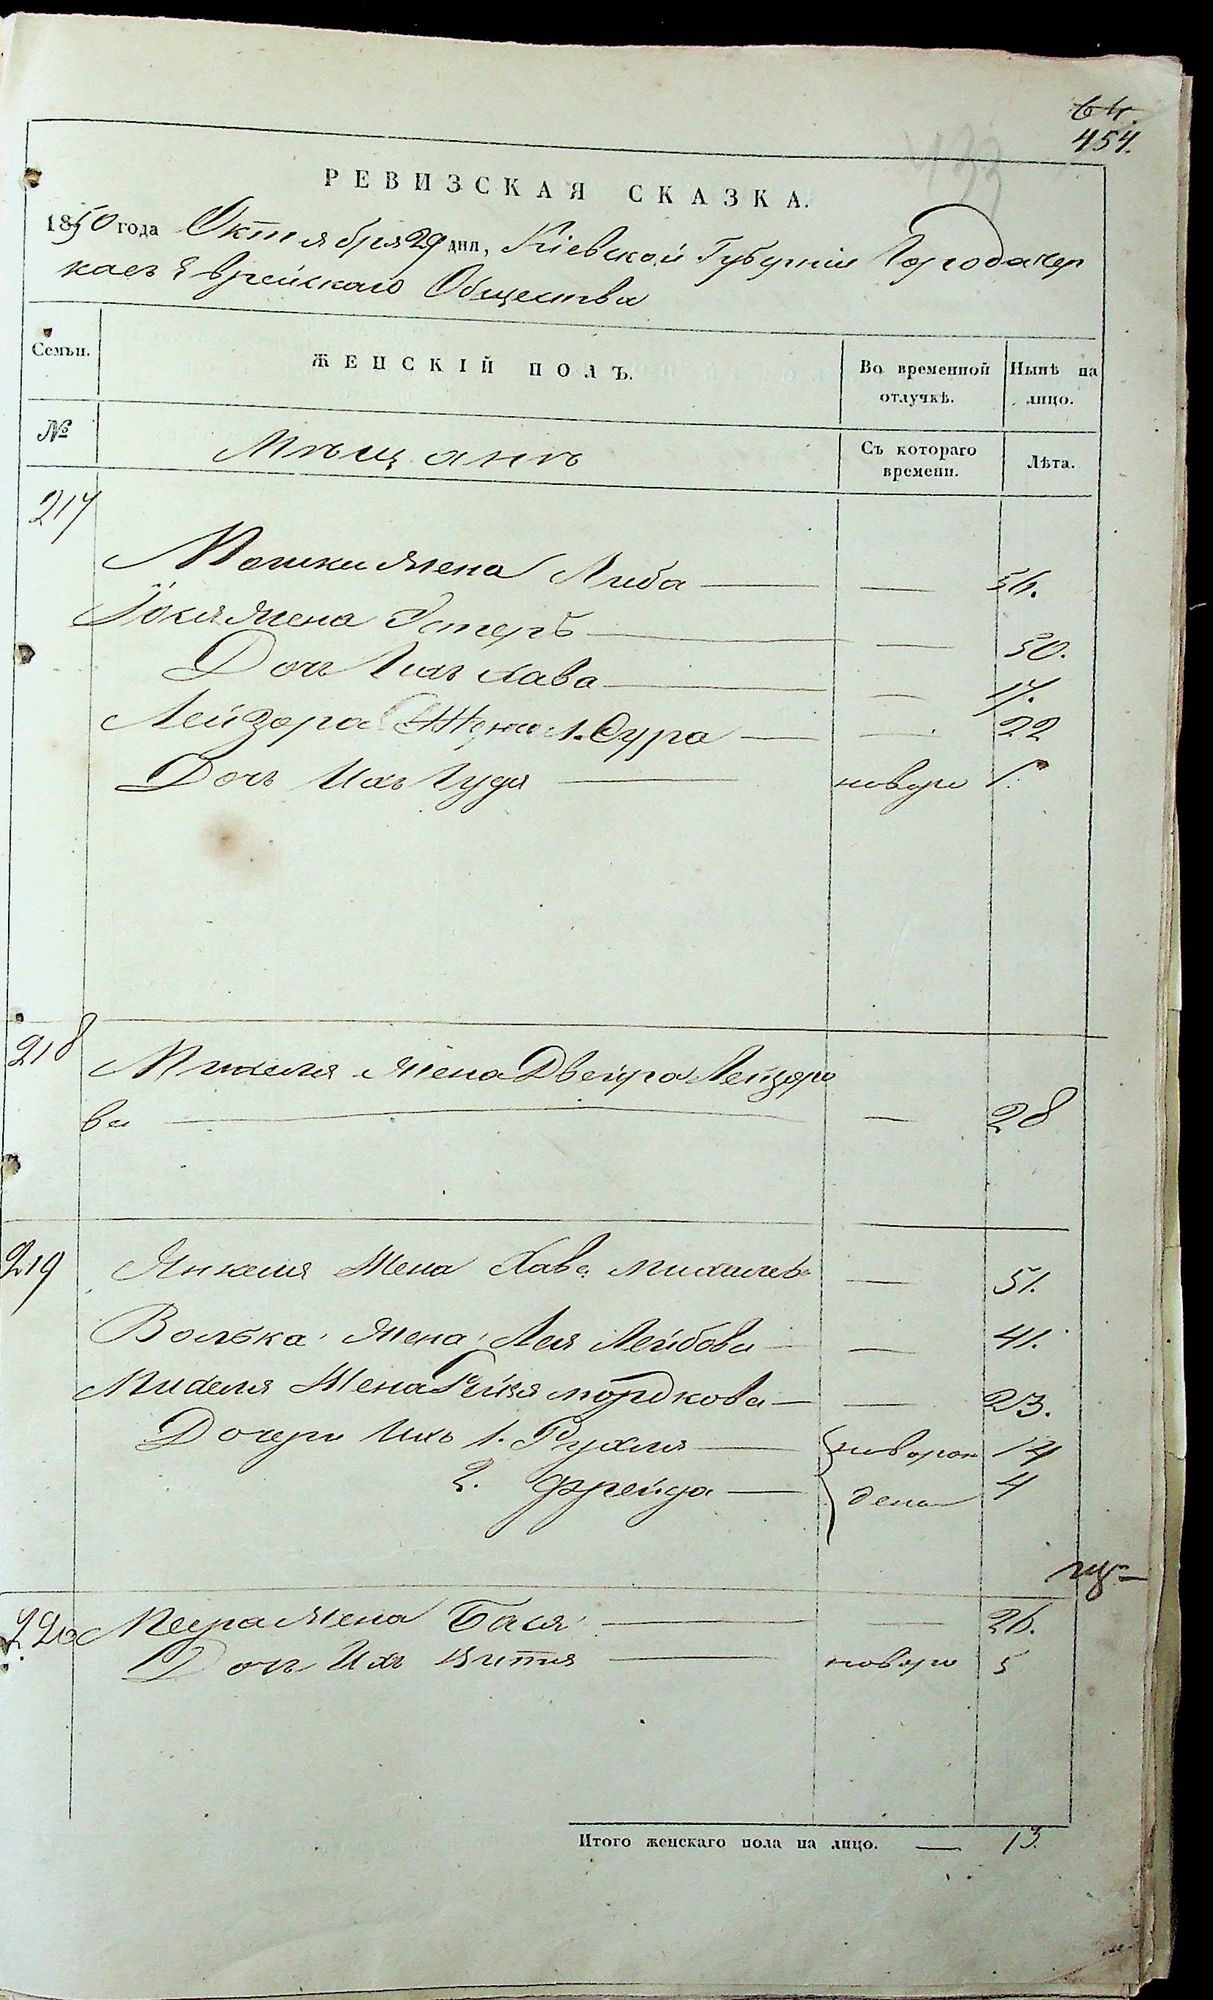 64.
454.
433
РЕВИЗСКАЯ СКАЗКА.
1850 года Октября 29 дня, Кіевской Губерніи Городокер
каго Еврейскаго Общества
Семьи. ЖЕНСКІЙ ПОЛЪ. Во временной отлучкѣ. Нынѣ на лицо.
№ Мѣщанъ Съ котораго времени. Лѣта.
217
Мошки жена Либа — — 56.
Іокия жена Эстеръ — — 50.
Дочь Ихъ Хава — — 17.
Лейзора Жена 1. Сура — — 22
Дочь Ихъ новоро 1.
218 Михеля жена Двейра Лейзоро
ва — — 28
219 Янкеля Жена Хава Михелева — 51.
Волька жена Лея Лейбова — — 41.
Михеля Жена Рейзя Мордкова — — 23.
Дочери Ихъ 1. Рухля — новорож 14
2. Фрейда — дена 4
220 Меера жена Бася — — 26.
Дочь Ихъ Витля — новоро 5
Итого женскаго пола на лицо. — 13.